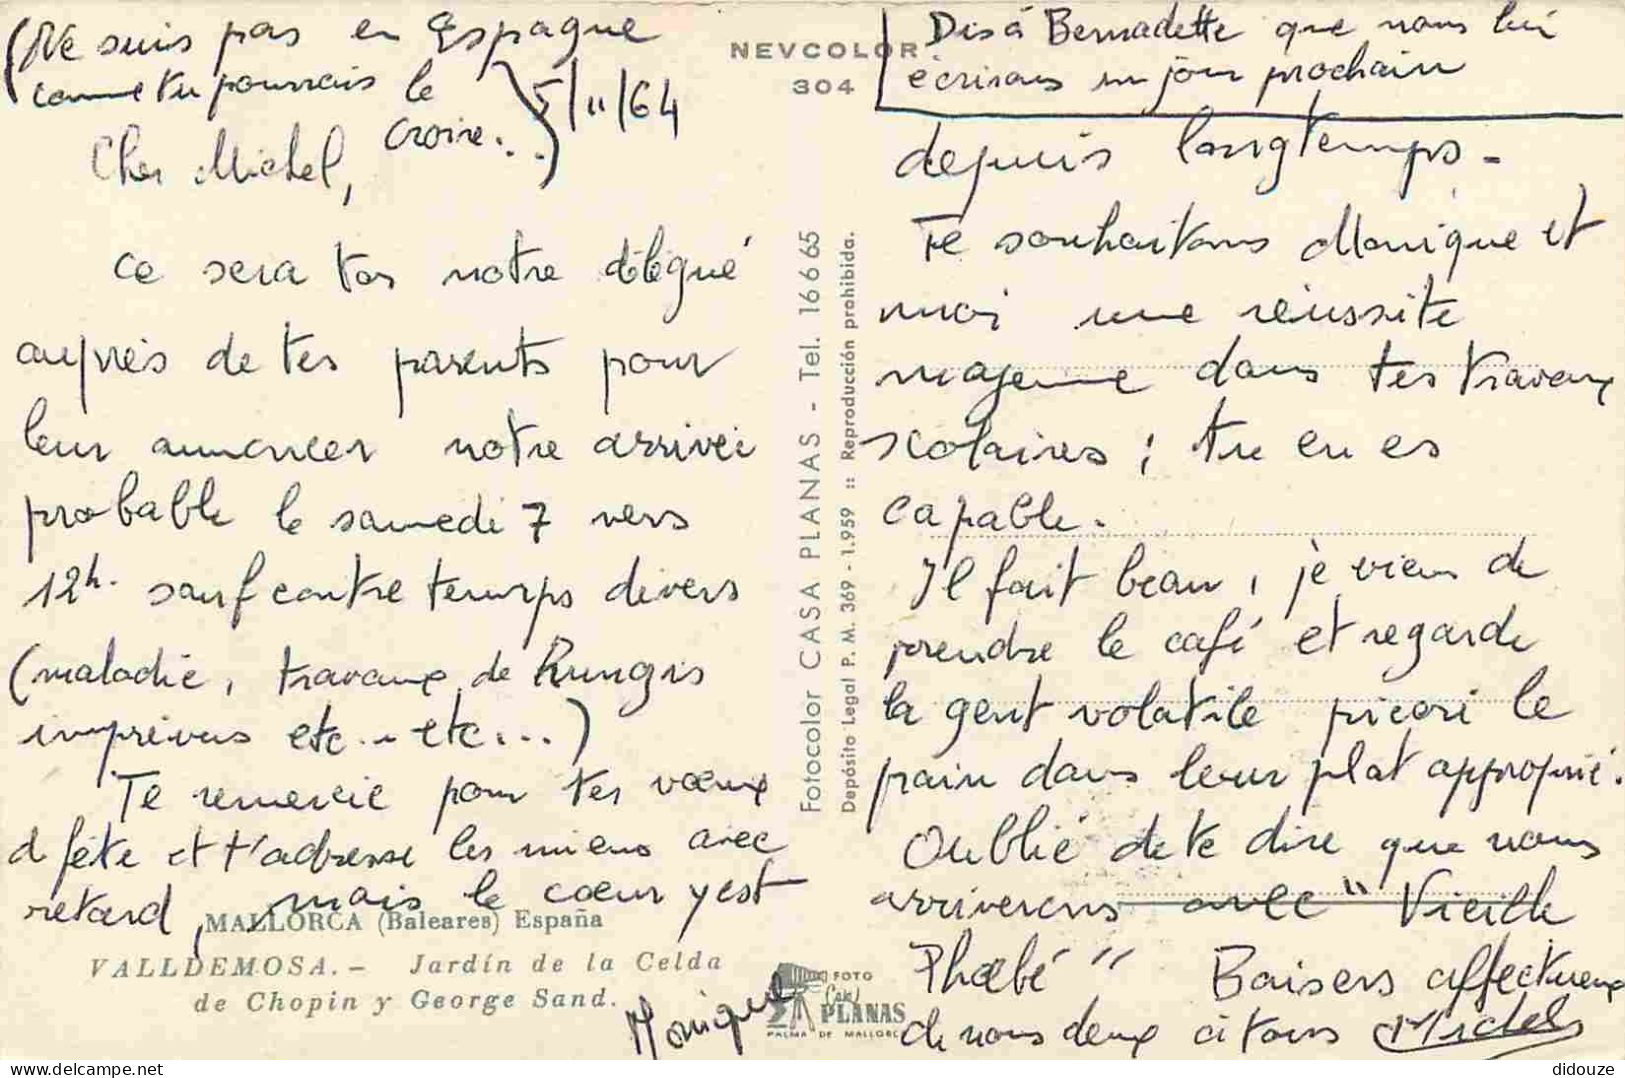 (Ne suis pas en Espagne
comme tu pourrais le
croire...) 5/11/64
Cher Michel,
ce sera toi notre délégué
auprès de tes parents pour
leur annoncer notre arrivée
probable le samedi 7 vers
12h. sauf contre temps divers
(maladie, travaux de Rungis
imprévus etc... etc....)
Te remercie pour tes vœux
d fête et t'adresse les miens avec
retard, mais le cœur y est
MALLORCA (Baleares) España
VALLDEMOSA. - Jardín de la Celda
de Chopin y George Sand.
Monique
NEVCOLOR
304
Fotocolor CASA PLANAS - Tel. 16665
Depósito Legal P. M. 369 - 1.959 :: Reproducción prohibida.
FOTO
Casa
PLANAS
PALMA DE MALLORCA
Dis à Bernadette que nous lui
écrirons un jour prochain
depuis longtemps.
Te souhaitons Monique et
moi une réussite
moyenne dans tes travaux
scolaires ; tu en es
capable.
Il fait beau, je viens de
prendre le café et regarde
la gent volatile picori le
pain dans leur plat approprié.
Oublié de te dire que nous
arriverons avec "Vieille
Phœbé" Baisers affectueux
de nous deux à tous Michel
didouze